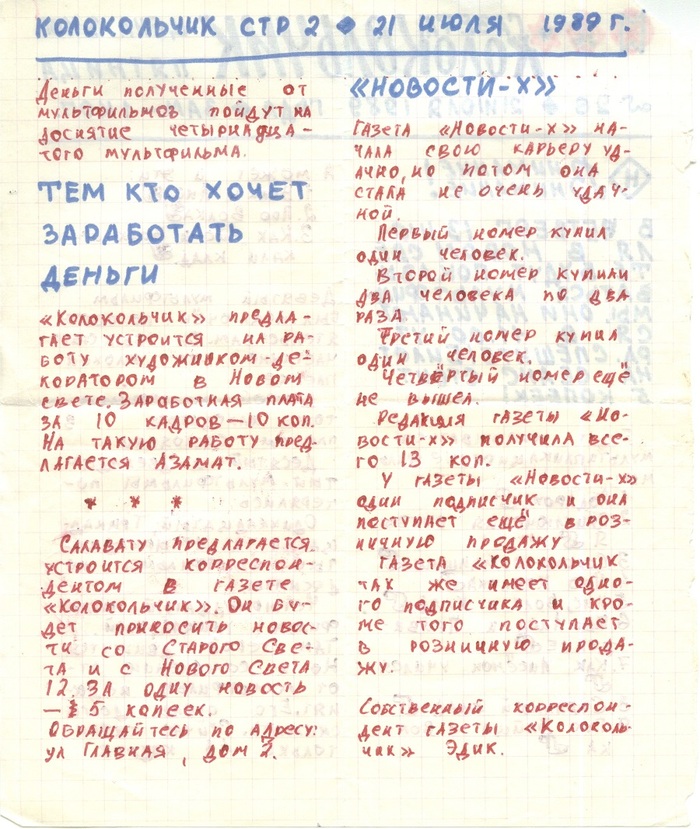 КОЛОКОЛЬЧИК СТР 2 ◆ 21 ИЮЛЯ 1989 Г.
Деньги полученные от
мультфильмов пойдут на
доснятие четырнадца-
того мультфильма.
ТЕМ КТО ХОЧЕТ
ЗАРАБОТАТЬ
ДЕНЬГИ
«Колокольчик» предла-
гает устроится на ра-
боту художником де-
коратором в Новом
свете. Заработная плата
за 10 кадров — 10 коп.
На такую работу пред-
лагается Азамат.
* * *
Салавату предлагается
устроится корреспон-
дентом в газете
«Колокольчик». Он бу-
дет приносить новос-
ти со Старого Све-
та и с Нового Света
12. За одну новость
— 5 копеек.
Обращайтесь по адресу:
ул Главная, дом 2.
«НОВОСТИ-Х»
Газета «Новости-Х» на-
чала свою карьеру уд-
ачно, но потом она
стала не очень удач-
ной.
Первый номер купил
один человек.
Второй номер купили
два человека по два
раза
Третий номер купил
один человек.
Четвёртый номер ещё
не вышел.
Редакция газеты «Но-
вости-х» получила все-
го 13 коп.
У газеты «Новости-х»
один подписчик и она
поступает ещё в роз-
ничную продажу
Газета «Колокольчик
так же имеет одно-
го подписчика и кро-
ме того поступает
в розничную прода-
жу.
Собственный корреспон-
дент газеты «Колоколь-
чик» Эдик.